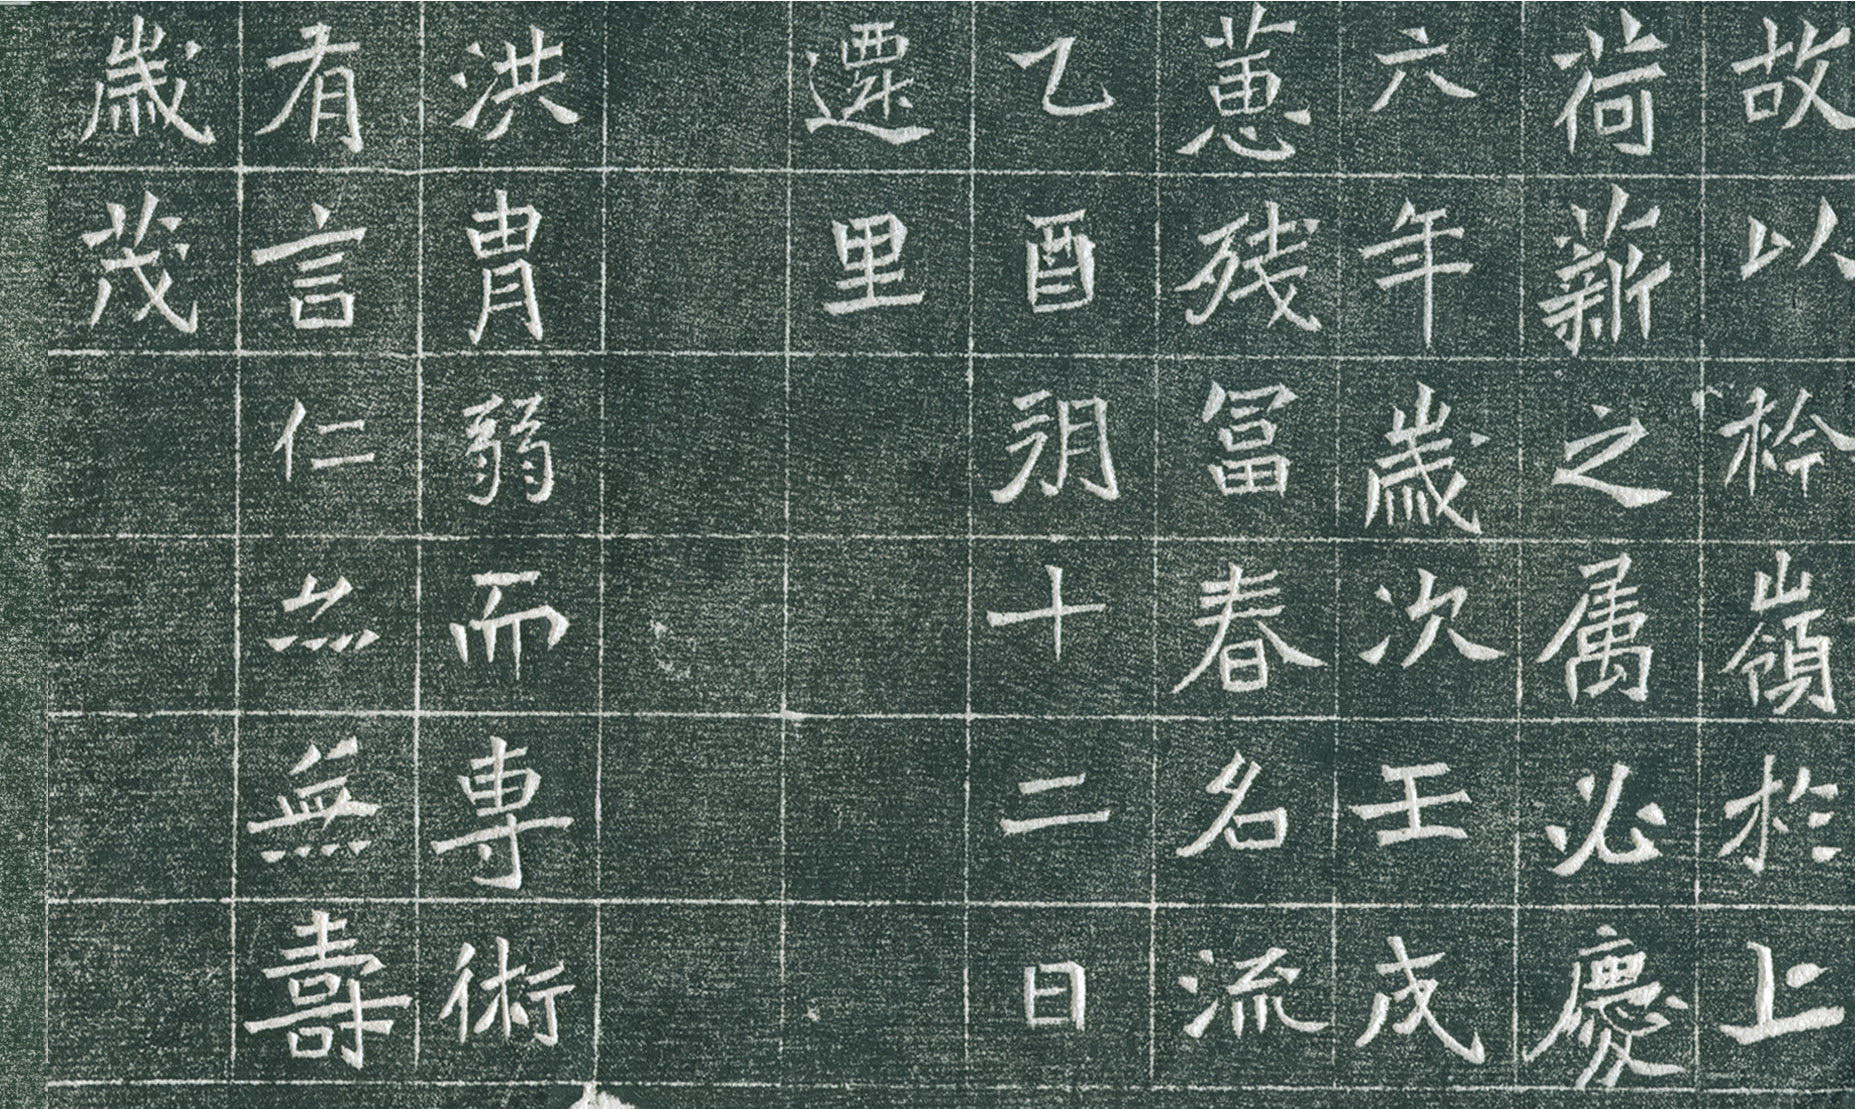 故以衿嶺於上
荷薪之属必慶
六年歲次壬戌
蕙残冨春名流
乙酉朔十二日
遷里
洪冑弱而専術
有言仁無壽
歲茂